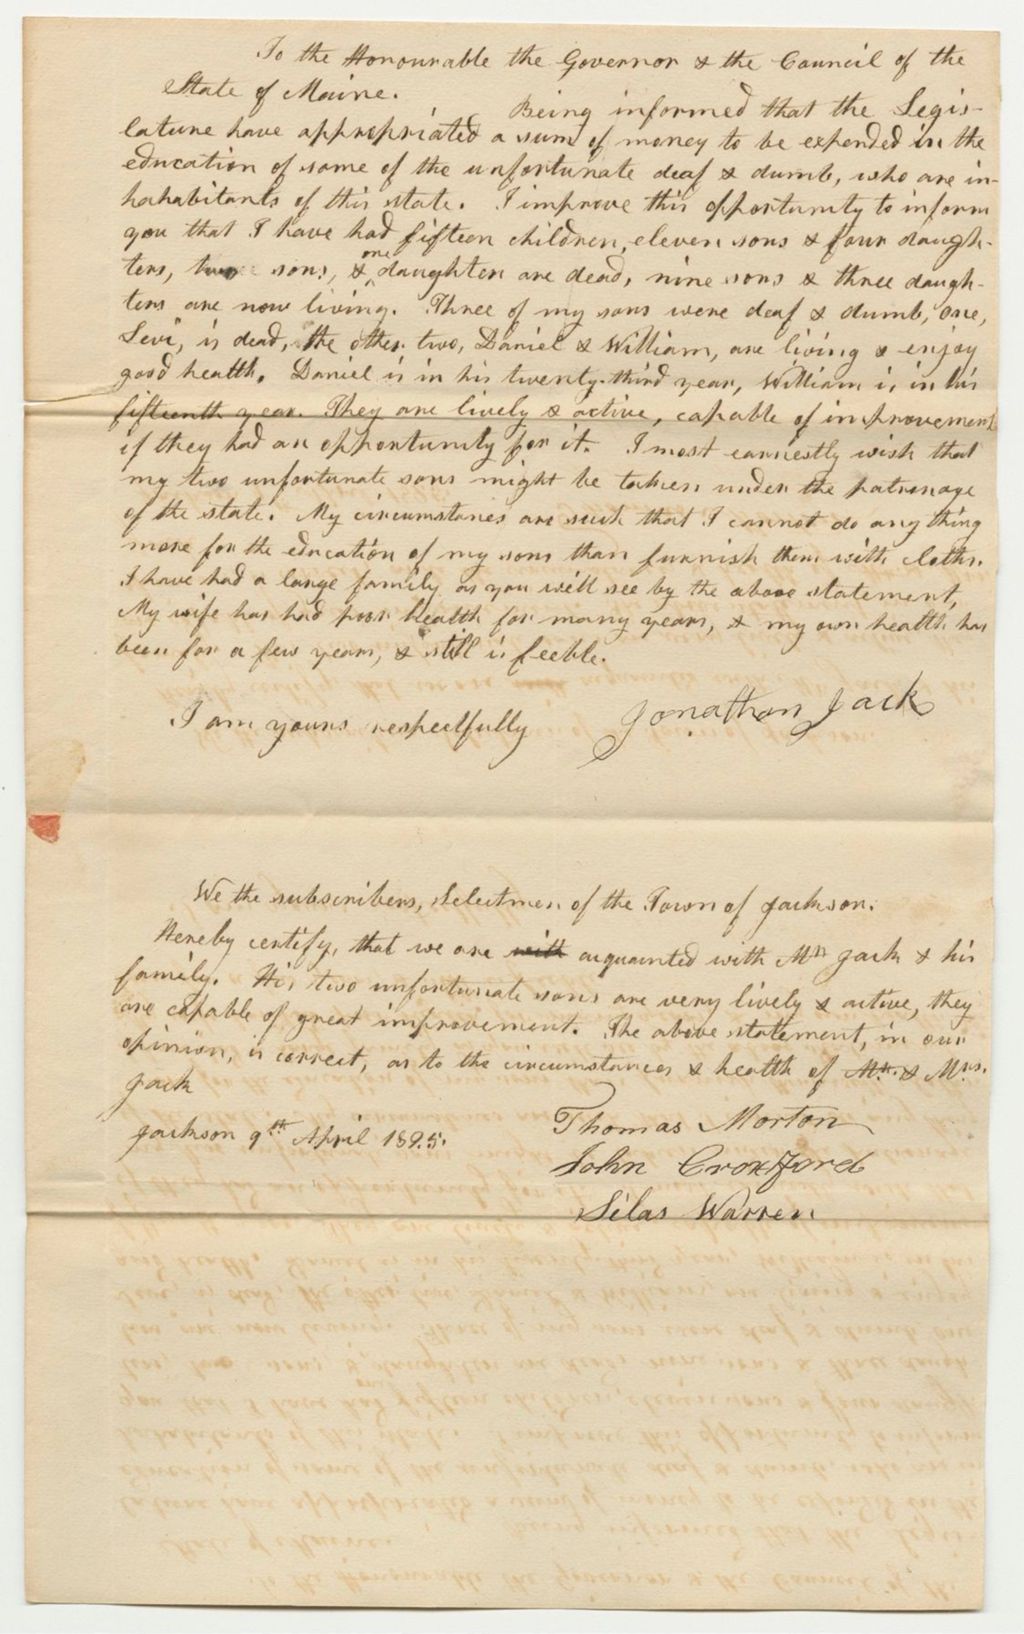 To the Honourable the Governor & the Council of the
State of Maine.
Being informed that the Legis-
lature have appropriated a sum of money to be expended in the
education of some of the unfortunate deaf & dumb, who are in-
hahabitants of this state. I improve this opportunity to inform
you that I have had fifteen children, eleven sons & four daugh-
ters, two sons, & one daughter are dead, nine sons & three daugh-
ters are now living. Three of my sons were deaf & dumb, one,
Levi, is dead, the other two, Daniel & William, are living & enjoy
good health. Daniel is in his twenty-third year, William is in his
fifteenth year. They are lively & active, capable of improvement
if they had an opportunity for it. I most earnestly wish that
my two unfortunate sons might be taken under the patronage
of the state. My circumstances are such that I cannot do any thing
more for the education of my sons than furnish them with cloths.
I have had a large family as you will see by the above statement,
My wife has had poor health for many years, & my own health has
been for a few years, & still is feeble.
I am yours respectfully Jonathan Jack
We the subscribers, Selectmen of the Town of Jackson.
Hereby certify, that we are with acquainted with Mr Jack & his
family. His two unfortunate sons are very lively & active, they
are capable of great improvement. The above statement, in our
opinion, is correct, as to the circumstances & health of Mr. & Mrs.
Jack
Jackson 9th April 1825.
Thomas Morton
John Croxford
Silas Warren